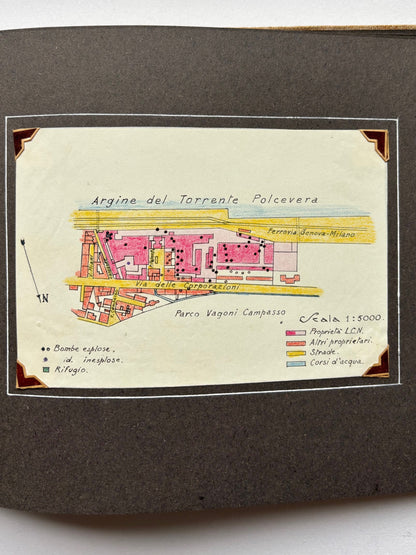 Argine del Torrente Polcevera
Ferrovia Genova-Milano
Via delle Corporazioni
N
Parco Vagoni Campasso
Scala 1:5000.
Proprietà I.C.N.
Altri proprietari.
Strade.
Corsi d'acqua.
Bombe esplose.
id. inesplose.
Rifugio.